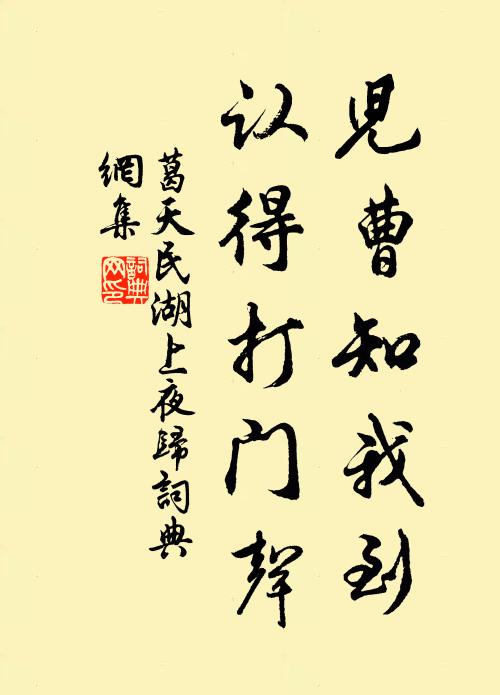 児曹知我到
认得打门聲
葛天民湖上夜歸詞典
網集
詞典网印